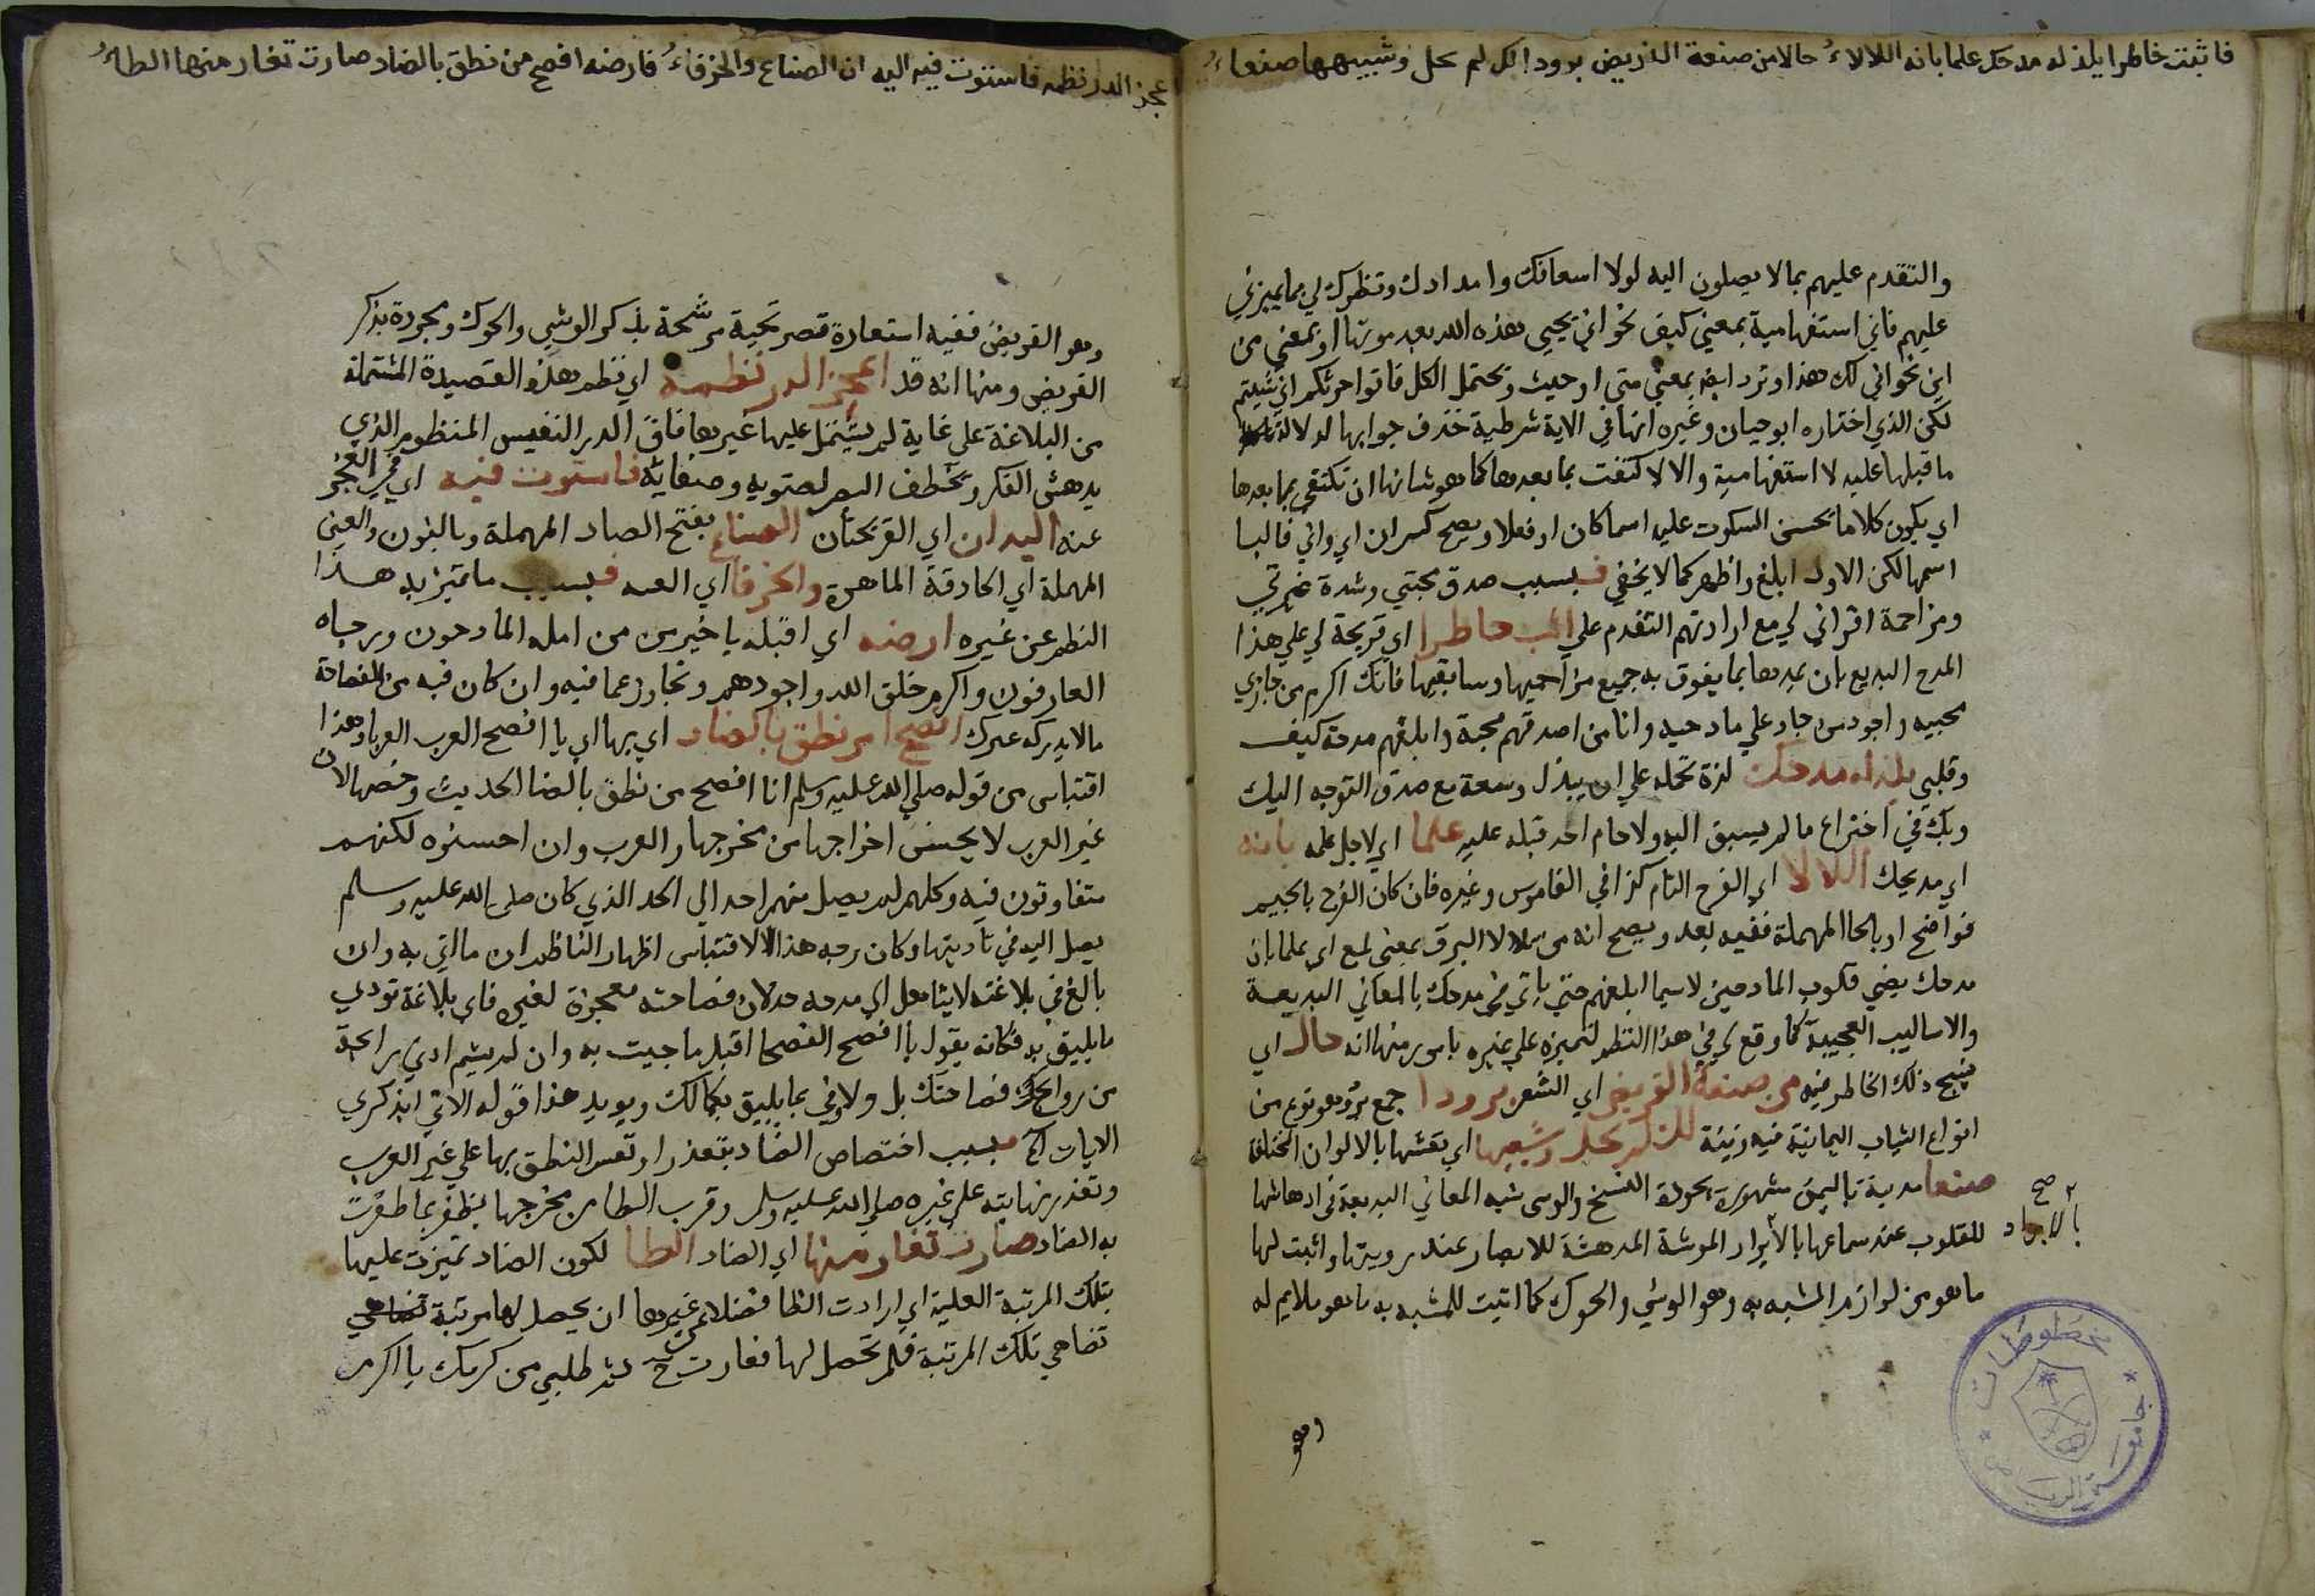 فاثبت خاطرا يلذ له مدحك علما بانه اللالاءُ حاك من صنعة القريض برودا لك لم تحك وشيهها صنعاءُ
والتقدم عليهم بما لا يصلون اليه لولا اسعافك وامدادك ونظرك لي بما يميزني
عليهم فاني استفهامية بمعني كيف نحو اني يحيي هذه الله بعد موتها او بمعني من
اين نحو اني لك هذا وترد ايضا بمعني متي او حيث ويحتمل الكل فاتوا حرثكم اني شيتم
لكن الذي اختاره ابو حيان وغيره انها في الاية شرطية حذف جوابها لدلالة
ما قبلها عليه لا استفهامية والا لاكتفت بما بعدها كما هو شانها ان تكتفي بما بعدها
اي يكون كلاما يحسن السكوت عليه اسما كان او فعلا ويصح كسر ان اي واني غالبا
اسمها لكن الاول ابلغ واظهر كما لا يخفي فبسبب صدق محبتي وشدة
ومزاحمة اقراني لي مع ارادتهم التقدم علي اثب خاطرا اي قريحة لي علي هذا
المدح البديع بان يمدها بما يفوق به جميع مزاحميها وسابقيها فانك اكرم من جازي
محبيه واجود من جاد علي مادحيه وانا من اصدقهم محبة وابلغهم مدحة كيف
وقلبي يلذ له مدحك لذة تحمله علي ان يبذل وسعة مع صدق التوجه اليك
وبك في اختراع ما لم يسبق اليه ولا حام احد قبله عليه علما اي لاجل علمه بانه
اي مديحك اللالا اي الفرح التام كذا في القاموس وغيره فان كان الفرح بالجيم
فواضح او بالحا المهملة ففيه بعد ويصح انه من تلالا البرق بمعني لمع اي علما بان
مدحك يضي قلوب المادحين لاسيما ابلغهم حتي ياتي في مدحك بالمعاني البديعة
والاساليب العجيبة كما وقع لي في هذا النظم لتميزه علي غيره بامور منها انه حاك اي
نسج ذلك الخاطر فيه من صنعة القريض اي الشعر برودا جمع برد وهو نوع من
انواع الثياب اليمانية فيه زينة لك لم تحك وشيها اي نقشها بالالوان المختلفة
صنعا مدينة باليمن مشهورة بجودة النسج والوشي شبه المعاني البديعة في ادهاشها
للقلوب عند سماعها بالابراد الموشة المدهشة للابصار عند رويتها واثبت لها
ما هو من لوازم المشبه به وهو الوشي والحوك كما اثبت للمشبه به ما هو ملايم له
صح
بالابراد
وهو
مخطوطات
جامعة الرياض
اعجز الدر نظمه فاستوت فيه اليدان الصناع والخرقاءُ فارضه افصح من نطق بالضاد صارت تغار منها الظاءُ
وهو القريض ففيه استعارة تصريحية مرشحة بذكر الوشي والحوك ومجردة بذكر
القريض ومنها انه قد اعجز الدر نظمه اي نظم هذه القصيدة المشتملة
من البلاغة علي غاية لم يشتمل عليها غيرها فاق الدر النفيس المنظوم الذي
يدهش الفكر ويخطف البصر لضويه وصفايه فاستوت فيه اي في العجز
عنه اليدان اي القريحتان الصناع بفتح الصاد المهملة وبالنون والعين
المهملة اي الحاذقة الماهرة والخرقا اي فبسبب ما تميز به هذا
النظم عن غيره ارضه اي اقبله يا خير من من امله المادحون ورجاه
العارفون واكرم خلق الله واجودهم وتجاوز عما فيه وان كان فيه من الفصاحة
ما لا يدركه غيرك افصح امر نطق بالضاد اي بها اي يا افصح العرب العربا وهذا
اقتباس من قوله صلي الله عليه وسلم انا افصح من نطق بالضا الحديث وخصها لان
غير العرب لا يحسن اخراجها من مخرجها والعرب وان احسنوه لكنهم
متفاوتون فيه وكلهم لم يصل منهم احد الي الحد الذي كان صلي الله عليه وسلم
يصل اليه في تاديتها وكان وجه هذا الاقتباس اظهار الناظم ان ما اتي به وان
بالغ في بلاغته لا يتاهل اي مدحه به لان فصاحته معجزة لغيره فاي بلاغة تودي
ما يليق به فكانه يقول يا افصح الفصحا اقبل ما جيت به وان لم يشم ادني رايحة
من روايح فصاحتك بل ولا وفي بما يليق بكمالك ويويد هذا قوله الاتي ابذكري
الايات الخ فبسبب اختصاص الضاد بتعذر او تعسر النطق بها علي غير العرب
وتعذر نهايته علي غيره صلي الله عليه وسلم وقرب الظا من مخرجها لم تظفر بما ظفرت
به الضاد صارت تغار منها اي الضاد الظا لكون الضاد تميزت عليها
بتلك المرتبة العلية اي ارادت الظا فضلا عن غيرها ان يحصل لها مرتبة
تضاهي تلك المرتبة فلم تحصل لها فغارت ح ثم طلبي من كرمك يا اكرم